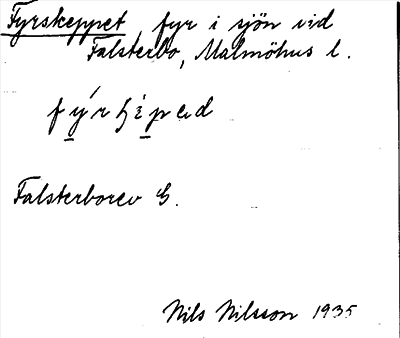 Fyrskeppet fyr i sjön vid
Falsterbo, Malmöhus l.
Falsterborev G.
Nils Nilsson 1935